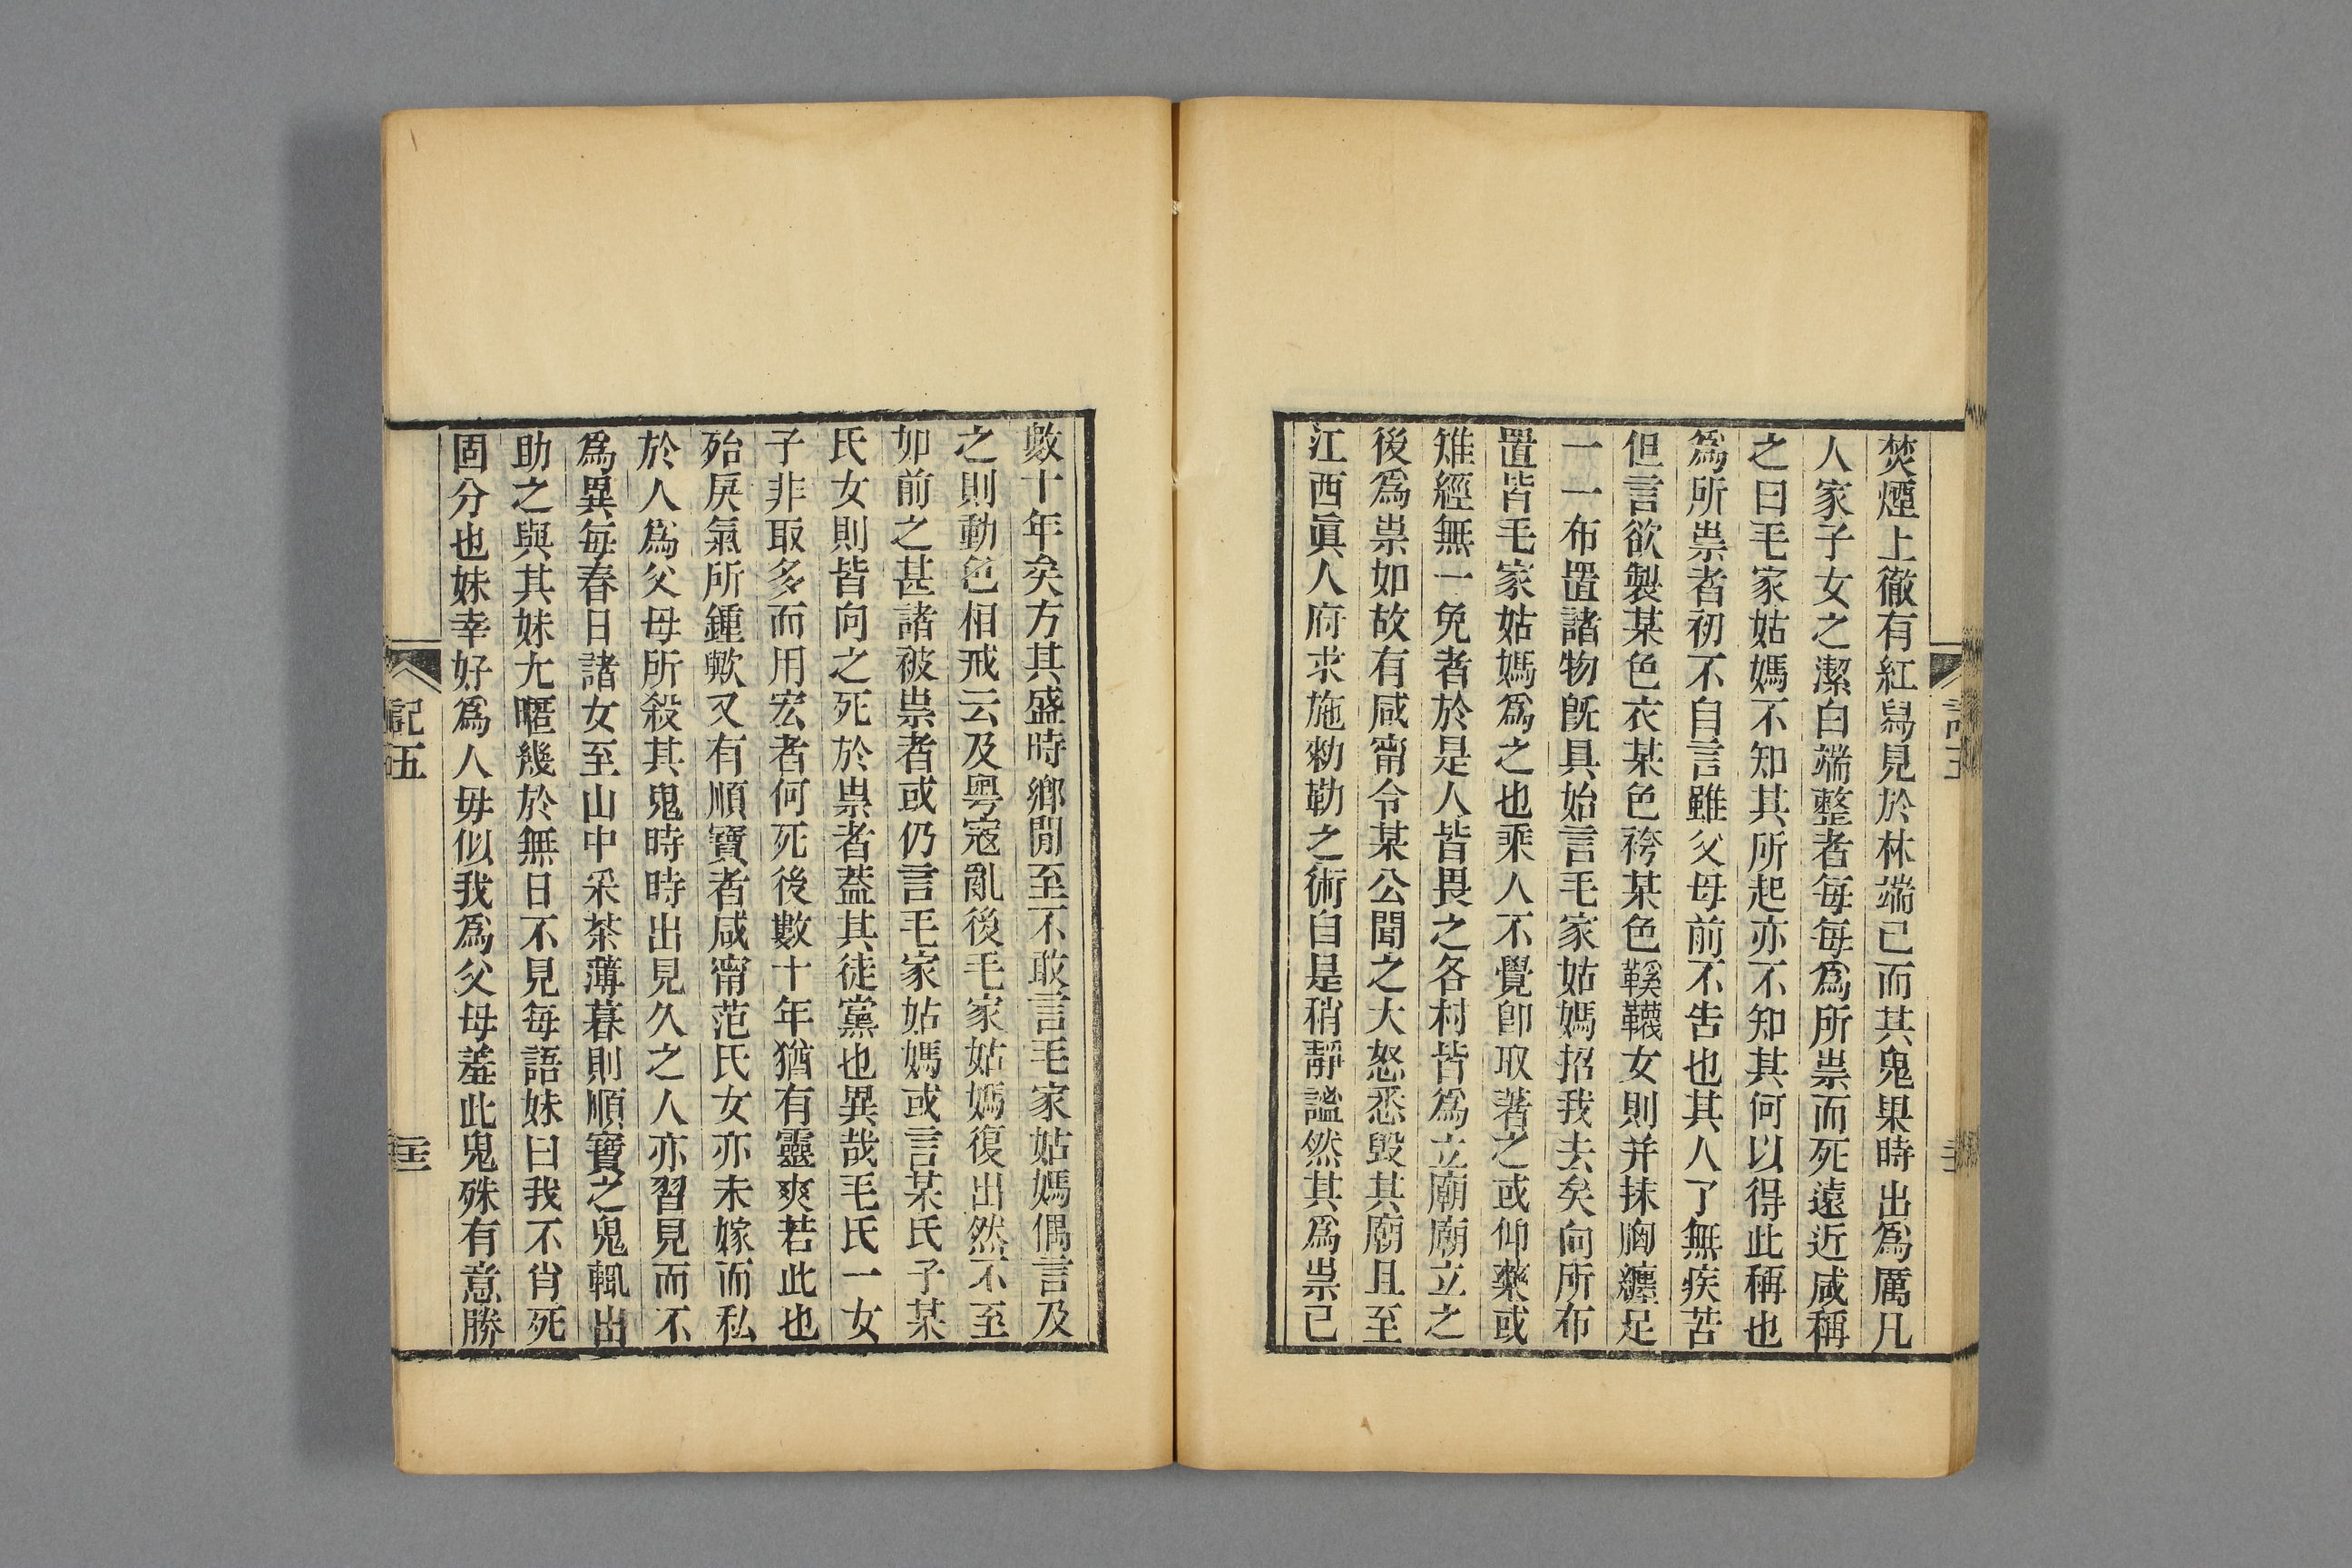 焚煙上徹有紅舄見於林端已而其鬼果時出爲厲凡
人家子女之潔白端整者每每爲所祟而死遠近咸稱
之曰毛家姑媽不知其所起亦不知其何以得此稱也
爲所祟者初不自言雖父母前不告也其人了無疾苦
但言欲製某色衣某色袴某色鞵韈女則并抹胸纏足
一一布置諸物旣具始言毛家姑媽招我去矣向所布
置皆毛家姑媽爲之也乘人不覺卽取著之或仰藥或
雉經無一免者於是人皆畏之各村皆爲立廟廟立之
後爲祟如故有咸甯令某公聞之大怒悉毀其廟且至
江西眞人府求施勑勒之術自是稍靜謐然其爲祟已
數十年矣方其盛時鄉閒至不敢言毛家姑媽偶言及
之則動色相戒云及粵寇亂後毛家姑媽復出然不至
如前之甚諸被祟者或仍言毛家姑媽或言某氏子某
氏女則皆向之死於祟者蓋其徒黨也異哉毛氏一女
子非取多而用宏者何死後數十年猶有靈爽若此也
殆戾氣所鍾歟又有順寶者咸甯范氏女亦未嫁而私
於人爲父母所殺其鬼時時出見久之人亦習見而不
爲異每春日諸女至山中采茶薄暮則順寶之鬼輒出
助之與其妹尤暱幾於無日不見每語妹曰我不肖死
固分也妹幸好爲人毋似我爲父母羞此鬼殊有意勝
記五